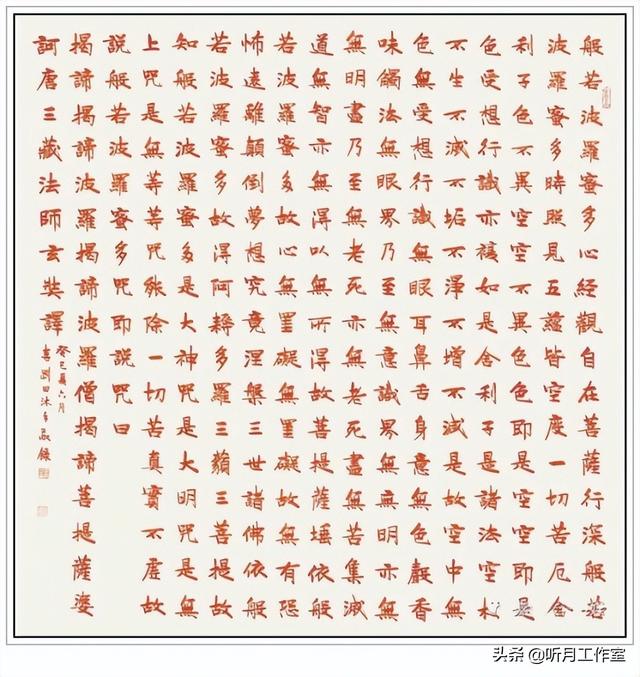 般若波羅蜜多心經觀自在菩薩行深般若
波羅蜜多時照見五蘊皆空度一切苦厄舍
利子色不異空空不異色色即是空空即是
色受想行識亦復如是舍利子是諸法空相
不生不滅不垢不淨不增不減是故空中無
色無受想行識無眼耳鼻舌身意無色聲香
味觸法無眼界乃至無意識界無無明亦無
無明盡乃至無老死亦無老死盡無苦集滅
道無智亦無得以無所得故菩提薩埵依般
若波羅蜜多故心無罣礙無罣礙故無有恐
怖遠離顛倒夢想究竟涅槃三世諸佛依般
若波羅蜜多故得阿耨多羅三藐三菩提故
知般若波羅蜜多是大神咒是大明咒是無
上咒是無等等咒能除一切苦真實不虛故
說般若波羅蜜多咒即說咒曰
揭諦揭諦波羅揭諦波羅僧揭諦菩提薩婆
訶唐三藏法師玄奘譯
癸巳夏六月
劉田沐手敬錄
头条 @听月工作室